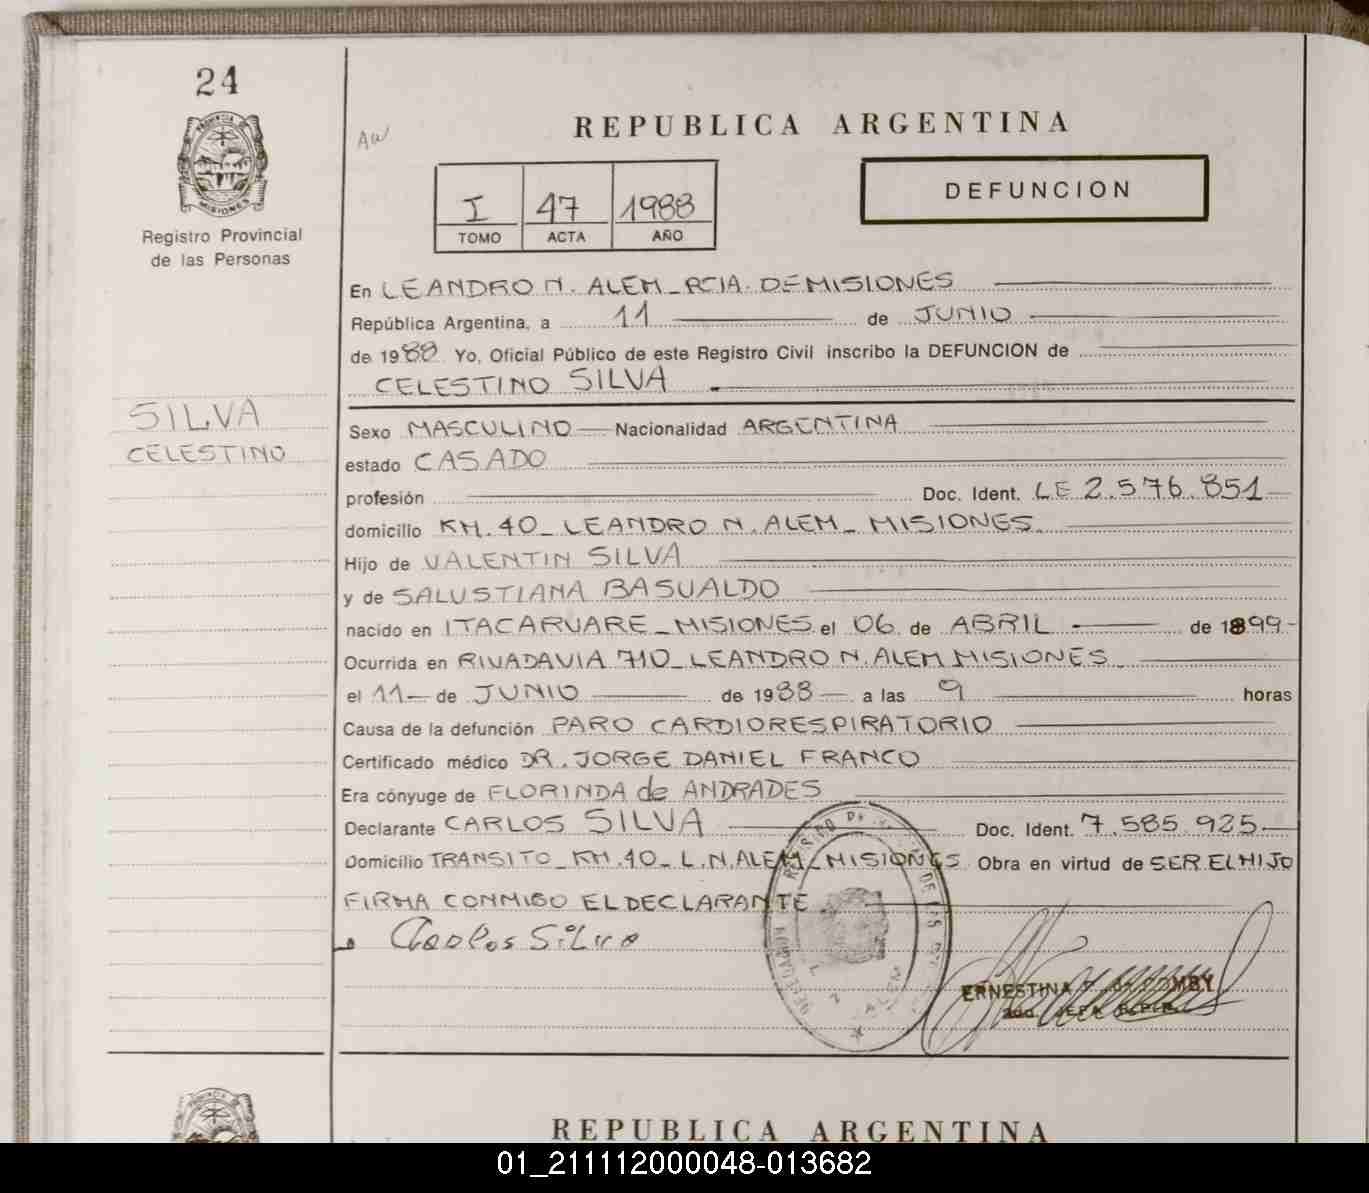 24
PROVINCIA DE
MISIONES
Registro Provincial
de las Personas
SILVA
CELESTINO
REPUBLICA ARGENTINA
I 47 1988
TOMO ACTA AÑO
DEFUNCION
En LEANDRO N. ALEM_PCIA. DE MISIONES
República Argentina, a 11 de JUNIO
de 1988 Yo, Oficial Público de este Registro Civil inscribo la DEFUNCION de
CELESTINO SILVA
Sexo MASCULINO Nacionalidad ARGENTINA
estado CASADO
profesión Doc. Ident. LE 2.576.851
domicilio KM.40_LEANDRO N. ALEM_ MISIONES
Hijo de VALENTIN SILVA
y de SALUSTIANA BASUALDO
nacido en ITACARUARE_MISIONES el 06 de ABRIL de 1899
Ocurrida en RIVADAVIA 710_LEANDRO N. ALEM MISIONES
el 11 de JUNIO de 1988 a las 9 horas
Causa de la defunción PARO CARDIORESPIRATORIO
Certificado médico DR. JORGE DANIEL FRANCO
Era cónyuge de FLORINDA de ANDRADES
Declarante CARLOS SILVA Doc. Ident. 7.585.925
Domicilio TRANSITO_KM.40_L.N.ALEM_MISIONES Obra en virtud de SER EL HIJO
FIRMA CONMIGO EL DECLARANTE
Carlos Silva
ERNESTINA
REPUBLICA ARGENTINA
01_211112000048-013682